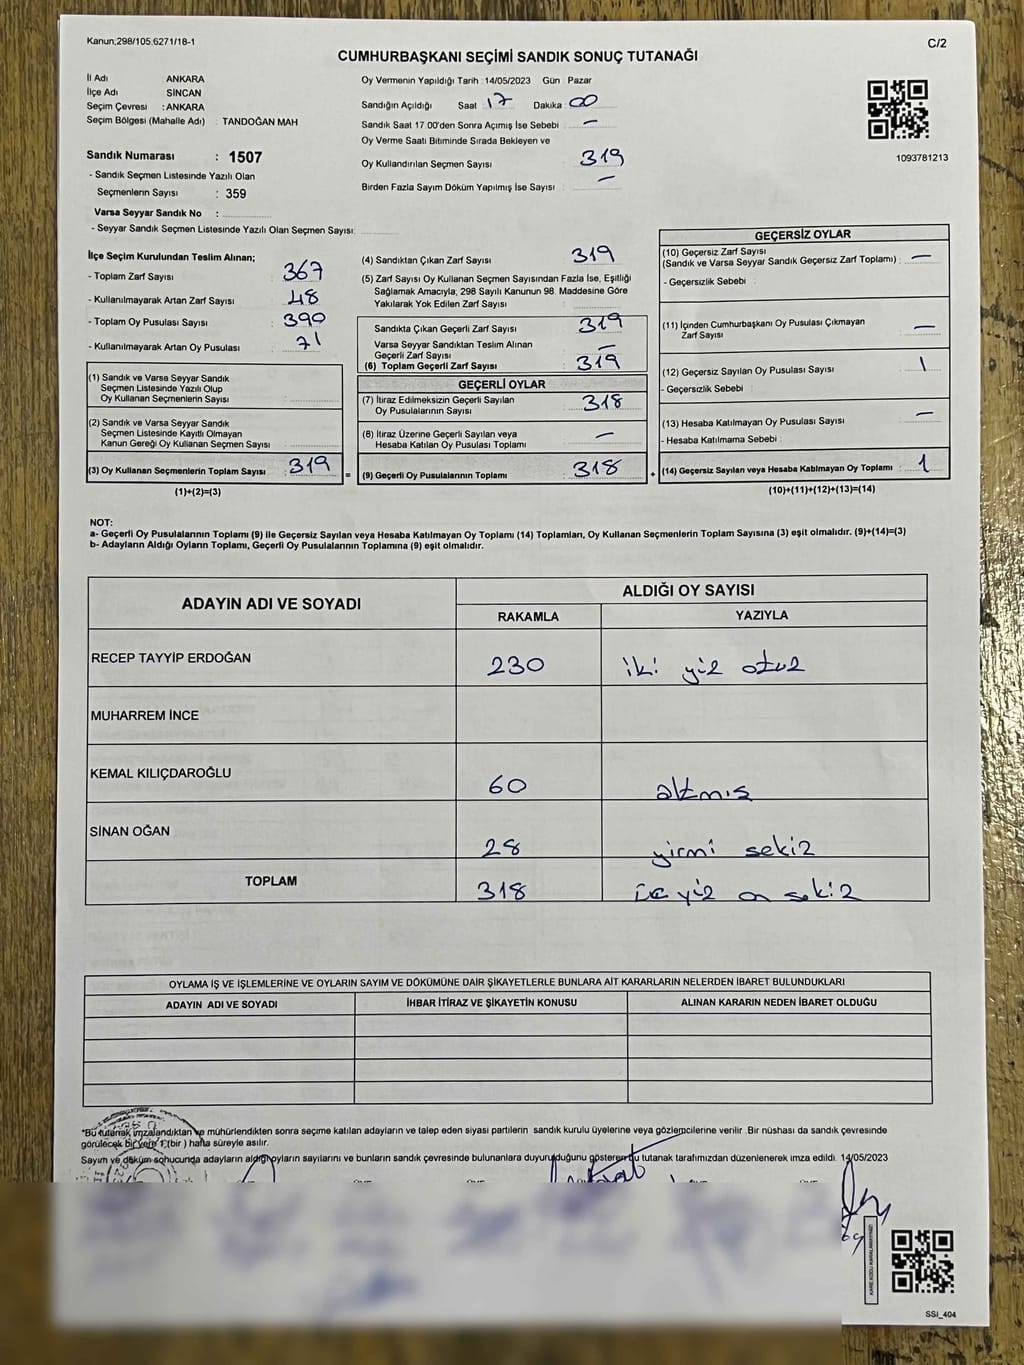 Kanun,298/105,6271/18-1
C/2
CUMHURBAŞKANI SEÇİMİ SANDIK SONUÇ TUTANAĞI
İl Adı ANKARA
İlçe Adı SİNCAN
Seçim Çevresi : ANKARA
Seçim Bölgesi (Mahalle Adı) : TANDOĞAN MAH
Sandık Numarası : 1507
- Sandık Seçmen Listesinde Yazılı Olan
Seçmenlerin Sayısı : 359
Varsa Seyyar Sandık No :
- Seyyar Sandık Seçmen Listesinde Yazılı Olan Seçmen Sayısı:
Oy Vermenin Yapıldığı Tarih :14/05/2023 Gün : Pazar
Sandığın Açıldığı Saat 17 Dakika : 00
Sandık Saat 17.00'den Sonra Açımış İse Sebebi : —
Oy Verme Saati Bitiminde Sırada Bekleyen ve
Oy Kullandırılan Seçmen Sayısı : 319
Birden Fazla Sayım Döküm Yapılmış İse Sayısı : —
1093781213
İlçe Seçim Kurulundan Teslim Alınan;
- Toplam Zarf Sayısı : 367
- Kullanılmayarak Artan Zarf Sayısı : 48
- Toplam Oy Pusulası Sayısı : 390
- Kullanılmayarak Artan Oy Pusulası : 71
(1) Sandık ve Varsa Seyyar Sandık
Seçmen Listesinde Yazılı Olup
Oy Kullanan Seçmenlerin Sayısı :
(2) Sandık ve Varsa Seyyar Sandık
Seçmen Listesinde Kayıtlı Olmayan
Kanun Gereği Oy Kullanan Seçmen Sayısı :
(3) Oy Kullanan Seçmenlerin Toplam Sayısı : 319
(1)+(2)=(3)
(4) Sandıktan Çıkan Zarf Sayısı : 319
(5) Zarf Sayısı Oy Kullanan Seçmen Sayısından Fazla İse, Eşitliği
Sağlamak Amacıyla, 298 Sayılı Kanunun 98. Maddesine Göre
Yakılarak Yok Edilen Zarf Sayısı :
Sandıkta Çıkan Geçerli Zarf Sayısı : 319
Varsa Seyyar Sandıktan Teslim Alınan
Geçerli Zarf Sayısı : —
(6) Toplam Geçerli Zarf Sayısı : 319
GEÇERLİ OYLAR
(7) İtiraz Edilmeksizin Geçerli Sayılan
Oy Pusulalarının Sayısı : 318
(8) İtiraz Üzerine Geçerli Sayılan veya
Hesaba Katılan Oy Pusulaları Toplamı : —
= (9) Geçerli Oy Pusulalarının Toplamı : 318
GEÇERSİZ OYLAR
(10) Geçersiz Zarf Sayısı
(Sandık ve Varsa Seyyar Sandık Geçersiz Zarf Toplamı) : —
- Geçersizlik Sebebi :
(11) İçinden Cumhurbaşkanı Oy Pusulası Çıkmayan
Zarf Sayısı : —
(12) Geçersiz Sayılan Oy Pusulası Sayısı : 1
- Geçersizlik Sebebi :
(13) Hesaba Katılmayan Oy Pusulası Sayısı : —
- Hesaba Katılmama Sebebi :
+ (14) Geçersiz Sayılan veya Hesaba Katılmayan Oy Toplamı : 1
(10)+(11)+(12)+(13)=(14)
NOT:
a- Geçerli Oy Pusulalarının Toplamı (9) ile Geçersiz Sayılan veya Hesaba Katılmayan Oy Toplamı (14) Toplamları, Oy Kullanan Seçmenlerin Toplam Sayısına (3) eşit olmalıdır. (9)+(14)=(3)
b- Adayların Aldığı Oyların Toplamı, Geçerli Oy Pusulalarının Toplamına (9) eşit olmalıdır.
ADAYIN ADI VE SOYADI ALDIĞI OY SAYISI
RAKAMLA YAZIYLA
RECEP TAYYİP ERDOĞAN 230 iki yüz otuz
MUHARREM İNCE
KEMAL KILIÇDAROĞLU 60 altmış
SİNAN OĞAN 28 yirmi sekiz
TOPLAM 318 üç yüz on sekiz
OYLAMA İŞ VE İŞLEMLERİNE VE OYLARIN SAYIM VE DÖKÜMÜNE DAİR ŞİKAYETLERLE BUNLARA AİT KARARLARIN NELERDEN İBARET BULUNDUKLARI
ADAYIN ADI VE SOYADI İHBAR İTİRAZ VE ŞİKAYETİN KONUSU ALINAN KARARIN NEDEN İBARET OLDUĞU
*Bu tutanak imzalandıktan ve mühürlendikten sonra seçime katılan adayların ve talep eden siyasi partilerin sandık kurulu üyelerine veya gözlemcilerine verilir .Bir nüshası da sandık çevresinde
görülecek bir yere 1(bir ) hafta süreyle asılır.
Sayım ve döküm sonucunda adayların aldığı oyların sayılarını ve bunların sandık çevresinde bulunanlara duyurulduğunu gösteren bu tutanak tarafımızdan düzenlenerek imza edildi. 14/05/2023
SSİ_404